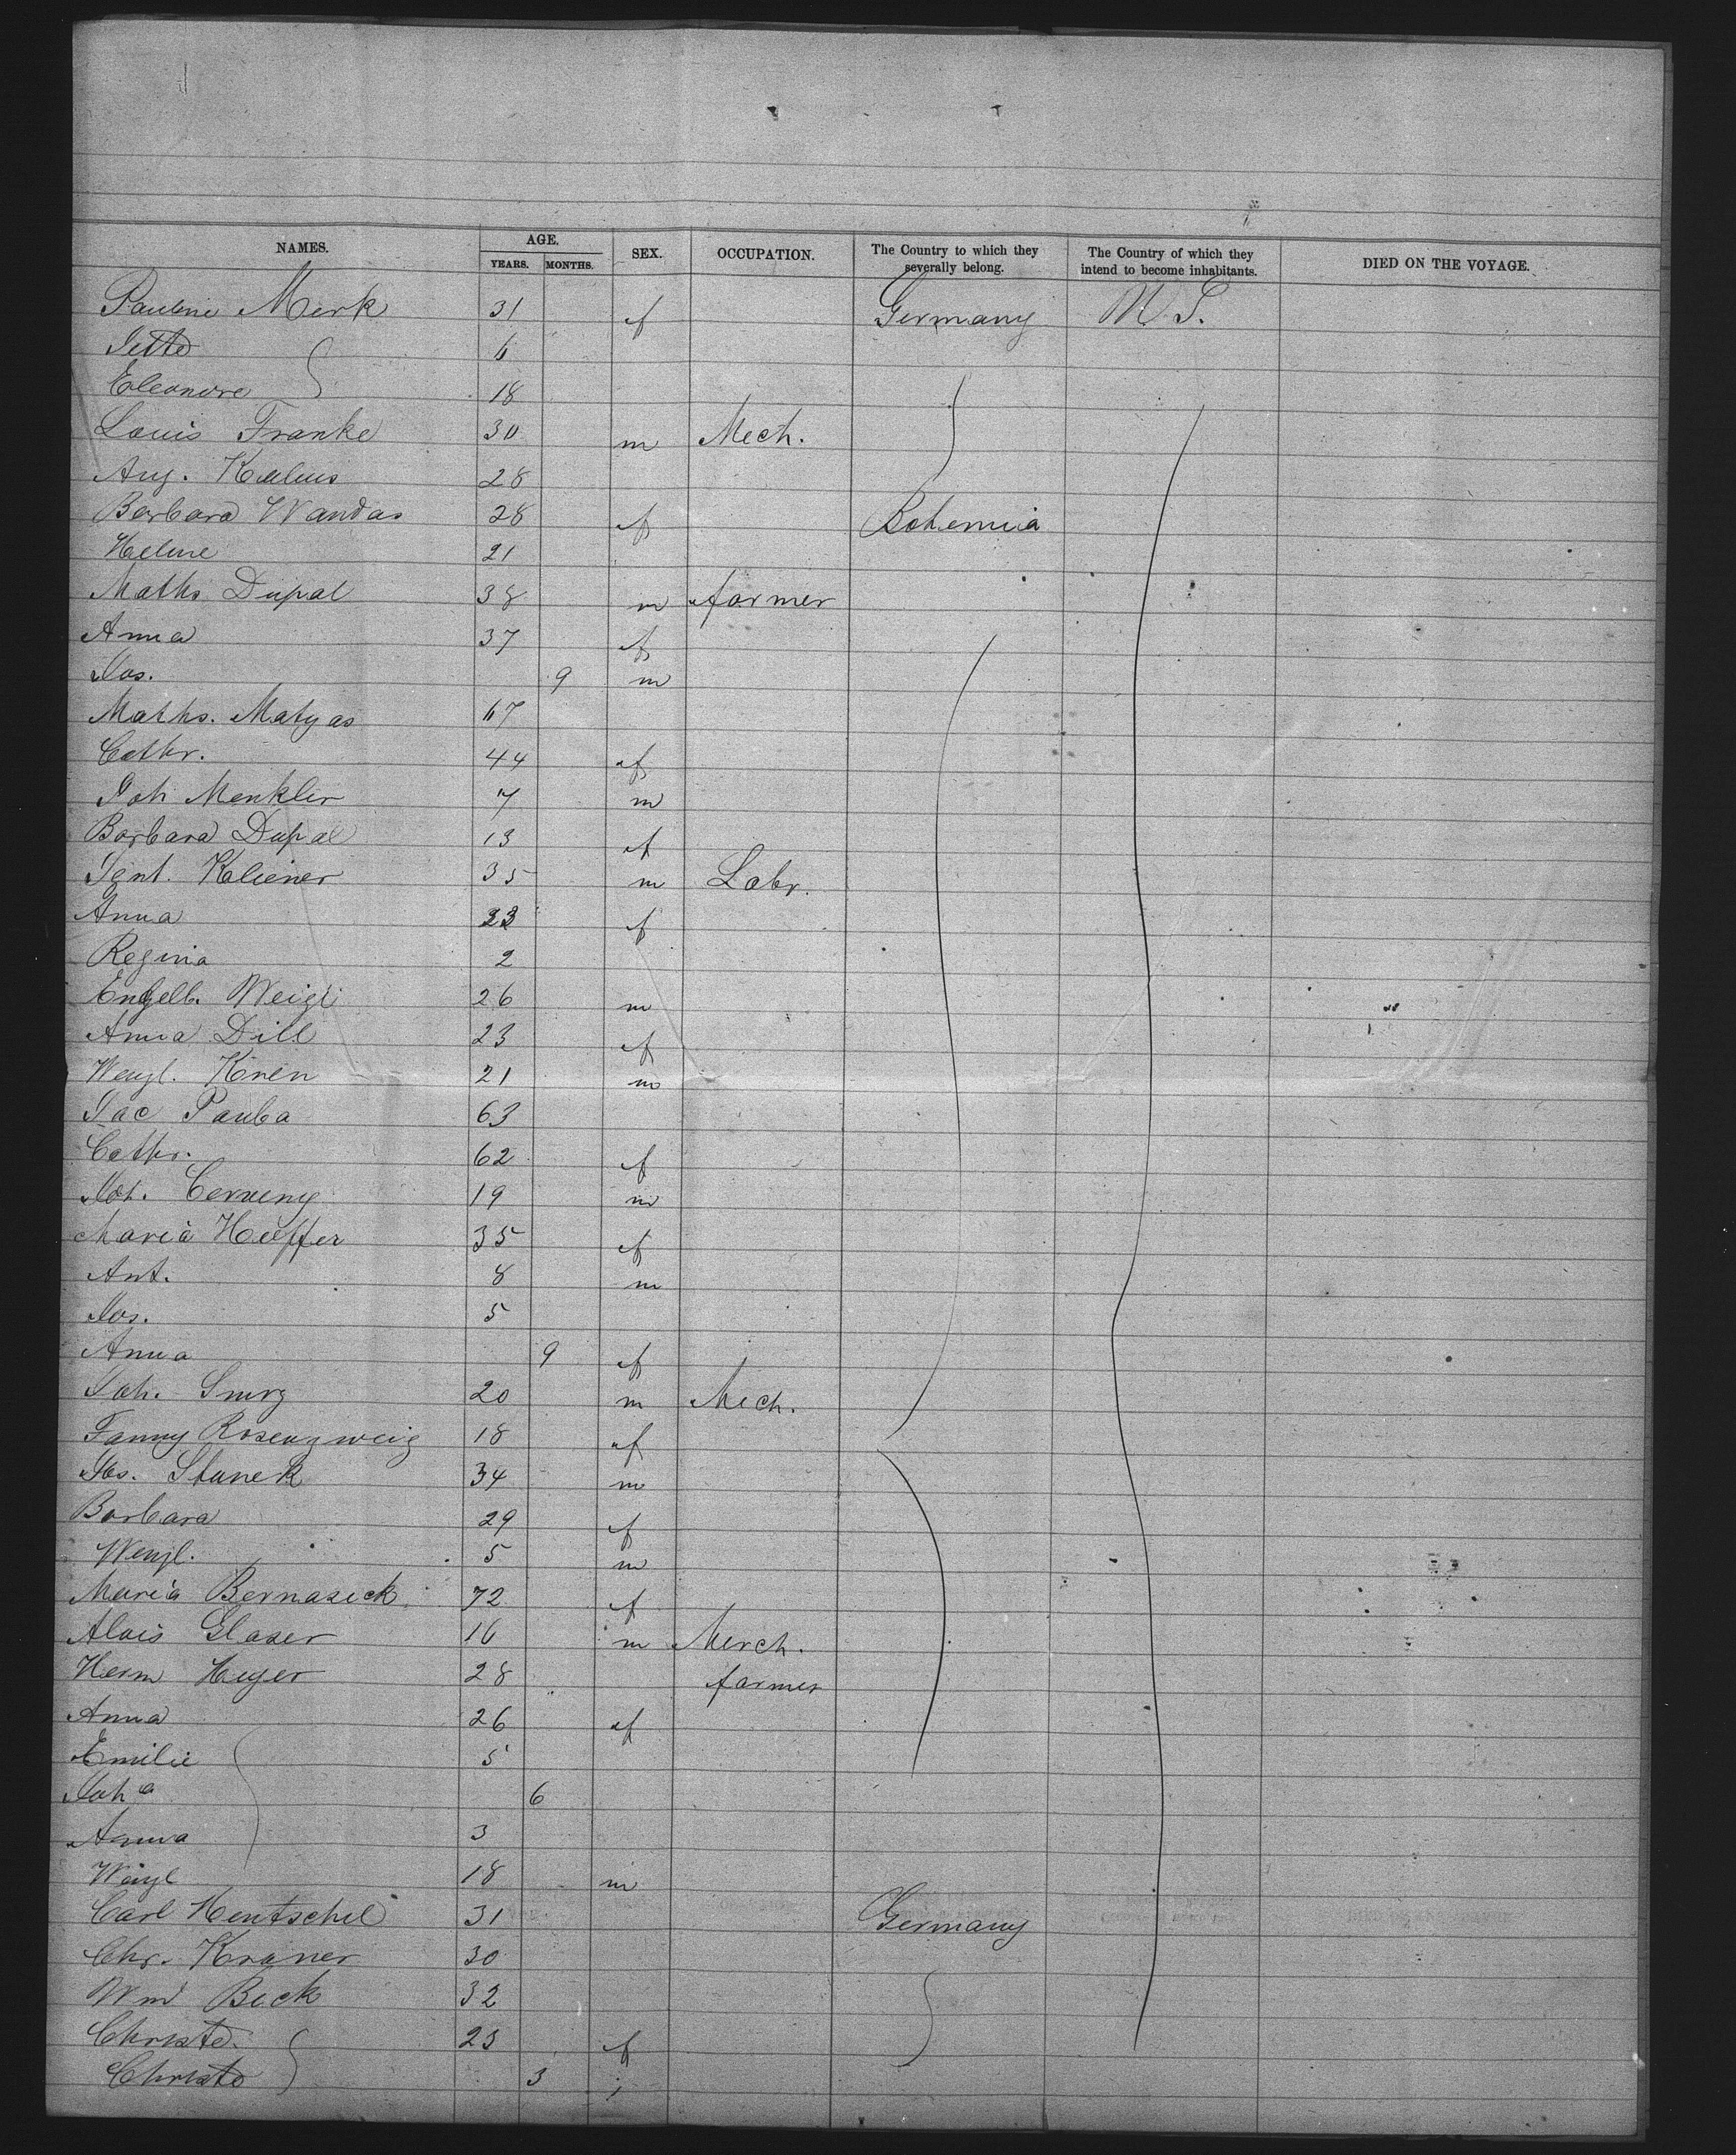 NAMES. AGE. SEX. OCCUPATION. The Country to which they severally belong. The Country of which they intend to become inhabitants. DIED ON THE VOYAGE.
YEARS. MONTHS.
Pauline Merk 31 f Germany U. S.
Jette 6
Eleonore 18
Louis Franke 30 m Mech.
Aug. 28
Barbara Wandas 28 f Bohemia
Helene 21
Maths Dupal 38 m farmer
Anna 37 f
Jos. 9 m
Maths. Matyas 67
Cathr. 44 f
Joh Menkler 7 m
Barbara Dupal 13 f
Kliener 35 m Labr.
Anna 23 f
Regina 2
Engelb. Weigl 26 m
Anna Dill 23 f
Wenzl. Kren 21 m
Jac Pauba 63
Cathr. 62 f
Joh. Cerveny 19 m
Maria Hueffer 35 f
Ant. 8 m
Jos. 5
Anna 9 f
Joh. Smrz 20 m Mech.
Fanny Rosenzweig 18 f
Jos. Stanek 34 m
Barbara 29 f
Wenzl. 5 m
Maria Bernasek 72 f
Alois Glaser 16 m Merch.
Herm Heyer 28 farmer
Anna 26 f
Emilie 5
Joha 6
Anna 3
Wenzl 18 m
Carl Hentschel 31 Germany
Chr. Kraner 30
Wm Beck 32
Christe. 23 f
Christe 3